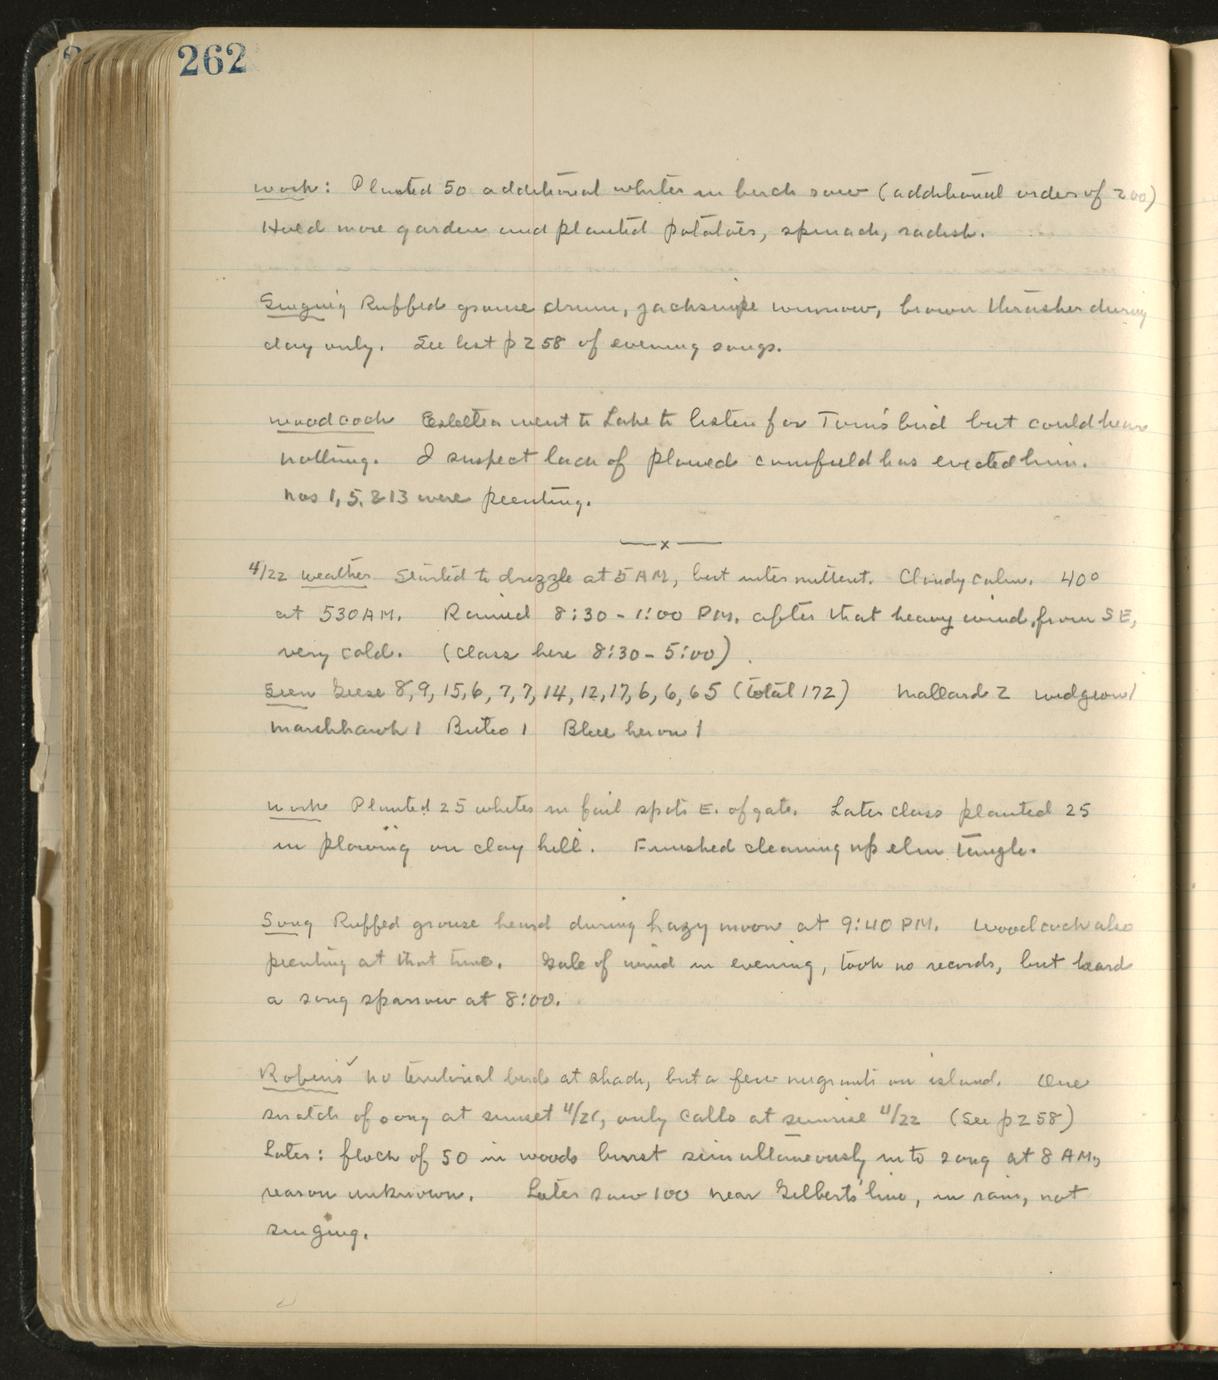 262
work: Planted 50 additional whites in birch row (additional order of 200)
Hoed more garden and planted potatoes, spinach, radish.
Singing Ruffed grouse drum, jacksnipe winnow, brown thrasher during
day only. See list p 258 of evening songs.
woodcock Estella went to Lake to listen for Tom's bird but could hear
nothing. I suspect lack of plowed cornfield has evicted him.
Nos 1, 5, & 13 were peenting.
—x—
4/22 weather Started to drizzle at 5 AM, but intermittent. Cloudy calm. 40°
at 530 AM. Rained 8:30 - 1:00 PM. after that heavy wind, from SE,
very cold. (Class here 8:30 - 5:00).
Seen Geese 8, 9, 15, 6, 7, 7, 14, 12, 17, 6, 6, 65 (total 172) Mallard 2 widgeon 1
Marshhawk 1 Buteo 1 Blue heron 1
work Planted 25 whites in fail spots E. of gate. Later class planted 25
in plowing on clay hill. Finished cleaning up elm tangle.
Song Ruffed grouse heard during hazy moon at 9:40 PM. Woodcock also
peenting at that time. Gale of wind in evening, took no records, but heard
a song sparrow at 8:00.
Robins ✓ No territorial birds at shack, but a few migrants on island. One
snatch of song at sunset 4/21, only calls at sunrise 4/22 (See p 258)
Later: flock of 50 in woods burst simultaneously into song at 8 AM,
reason unknown. Later saw 100 near Gilbert's line, in rain, not
singing.